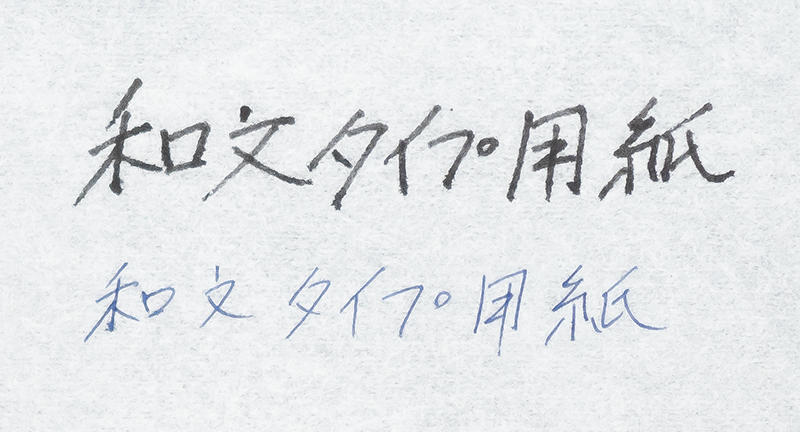 和文タイプ用紙
和文タイプ用紙